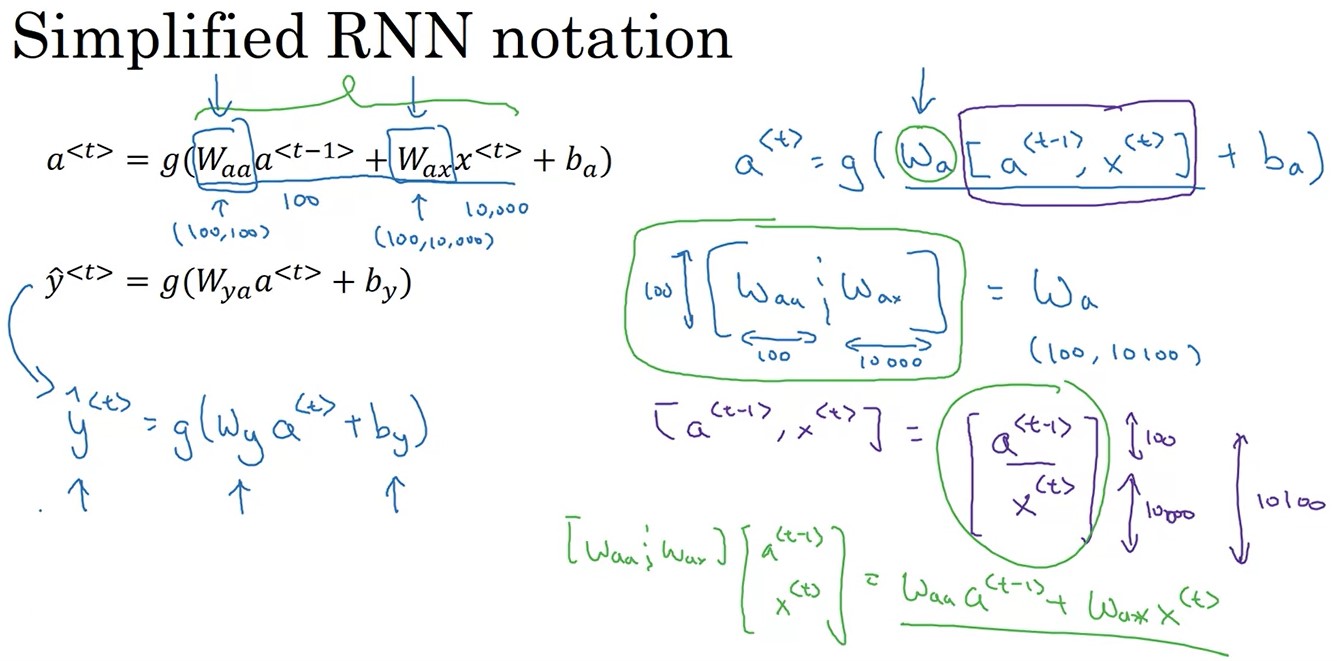 Simplified RNN notation
a^{<t>} = g(W_{aa}a^{<t-1>} + W_{ax}x^{<t>} + b_a)
100 10,000
(100,100) (100,10,000)
ŷ^{<t>} = g(W_{ya}a^{<t>} + b_y)
ŷ^{<t>} = g(W_y a^{<t>} + b_y)
a^{<t>} = g(W_a[a^{<t-1>}, x^{<t>}] + b_a)
100 [W_{aa} ¦ W_{ax}] = W_a
100 10000 (100, 10100)
[a^{<t-1>}, x^{<t>}] = [a^{<t-1>}
x^{<t>}] 100
10000 10100
[W_{aa} ¦ W_{ax}] [a^{<t-1>}
x^{<t>}] = W_{aa}a^{<t-1>} + W_{ax}x^{<t>}